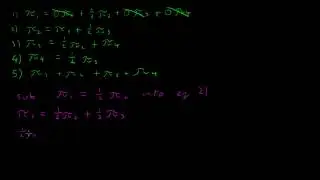 1) π₁ = 0π₁ + ½π₂ + 0π₃ + 0π₄
2) π₂ = π₁ + ½π₃
3) π₃ = ½π₂ + π₄
4) π₄ = ½π₃
5) π₁ + π₂ + π₃ + π₄
sub π₁ = ½π₂ into eq 2)
π₂ = ½π₂ + ½π₃
½π₂